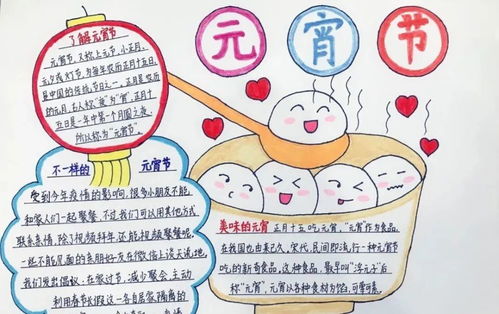 元宵节
了解元宵节
元宵节,又称上元节、小正月、
元夕或灯节,为每年农历正月十五日,
是中国的传统节日之一。正月是农历
的元月,古人称“夜”为“宵”,正月十
五日是一年中第一个月圆之夜,
所以称为“元宵节”。
不一样的 元宵节
受到今年疫情的影响,很多小朋友不能
和家人们一起聚餐,不过我们可以用其他方式
联系亲情,除了视频拜年,还能视频聚餐呢。
一些不能见面的亲朋好友在微信上谈天说地,
我们发出倡议:在家过节,减少聚会,主动
利用春节长假这一自居家隔离的
美味的元宵 正月十五吃元宵,“元宵”作为食品,
在我国也由来已久。宋代,民间即流行一种元宵节
吃的新奇食品。这种食品,最早叫“浮元子”后
称“元宵”,元宵以各种食材为馅,可荤可素。